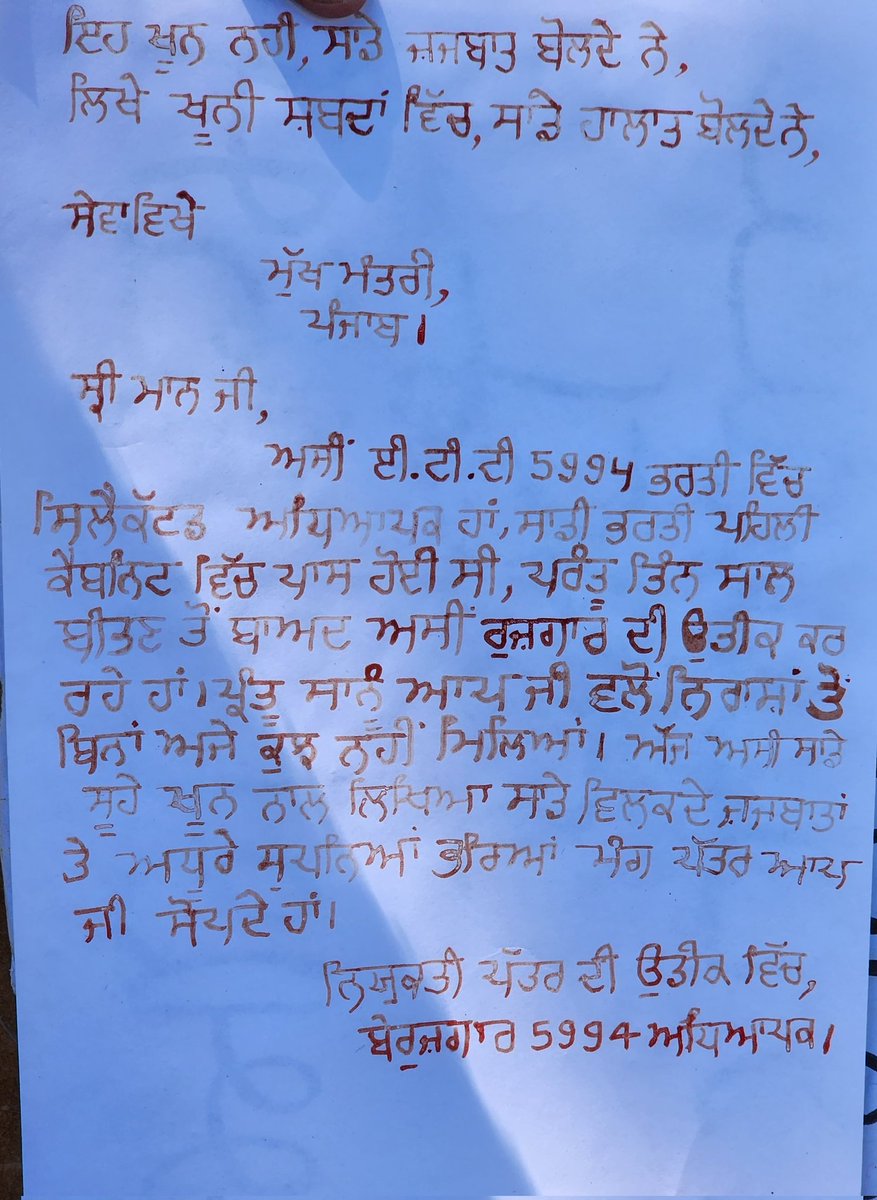 ਇਹ ਖ਼ੂਨ ਨਹੀਂ, ਸਾਡੇ ਜ਼ਜਬਾਤ ਬੋਲਦੇ ਨੇ,
ਲਿਖੇ ਖ਼ੂਨੀ ਸ਼ਬਦਾਂ ਵਿੱਚ, ਸਾਡੇ ਹਾਲਾਤ ਬੋਲਦੇ ਨੇ,
ਸੇਵਾ ਵਿਖੇ
ਮੁੱਖ ਮੰਤਰੀ,
ਪੰਜਾਬ।
ਸ੍ਰੀ ਮਾਨ ਜੀ,
ਅਸੀਂ ਈ.ਟੀ.ਟੀ 5994 ਭਰਤੀ ਵਿੱਚ
ਸਿਲੈਕੱਟਡ ਅਧਿਆਪਕ ਹਾਂ, ਸਾਡੀ ਭਰਤੀ ਪਹਿਲੀ
ਕੈਬਨਿਟ ਵਿੱਚ ਪਾਸ ਹੋਈ ਸੀ, ਪਰੰਤੂ ਤਿੰਨ ਸਾਲ
ਬੀਤਣ ਤੋਂ ਬਾਅਦ ਅਸੀਂ ਰੁਜ਼ਗਾਰ ਦੀ ਉਤੀਕ ਕਰ
ਰਹੇ ਹਾਂ। ਪ੍ਰੰਤੂ ਸਾਨੂੰ ਆਪ ਜੀ ਵਲੋਂ ਨਿਰਾਸ਼ਾਂ ਤੋਂ
ਬਿਨਾਂ ਅਜੇ ਕੁਝ ਨਹੀਂ ਮਿਲਿਆਂ। ਅੱਜ ਅਸੀ ਸਾਡੇ
ਸੂਹੇ ਖ਼ੂਨ ਨਾਲ ਲਿਖਿਆ ਸਾਡੇ ਵਿਲਕਦੇ ਜ਼ਜਬਾਤਾਂ
ਤੇ ਅਧੂਰੇ ਸੁਪਨਿਆਂ ਭਰਿਆਂ ਮੰਗ ਪੱਤਰ ਆਪ
ਜੀ ਸੋਂਪਦੇ ਹਾਂ।
ਨਿਯੁਕਤੀ ਪੱਤਰ ਦੀ ਉਤੀਕ ਵਿੱਚ,
ਬੇਰੁਜ਼ਗਾਰ 5994 ਅਧਿਆਪਕ।